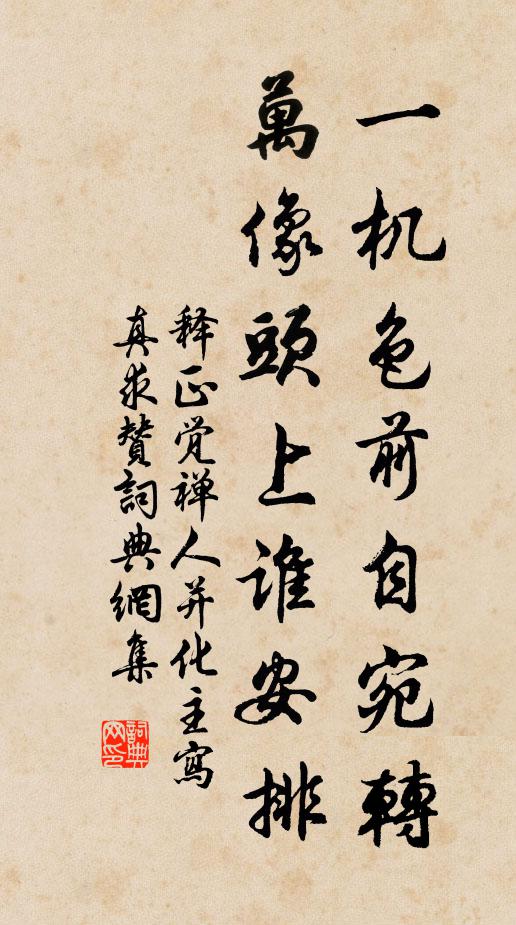 一机色前自宛轉
萬像頭上誰安排
释正觉禅人并化主寫
真求贊詞典網集
詞典网印